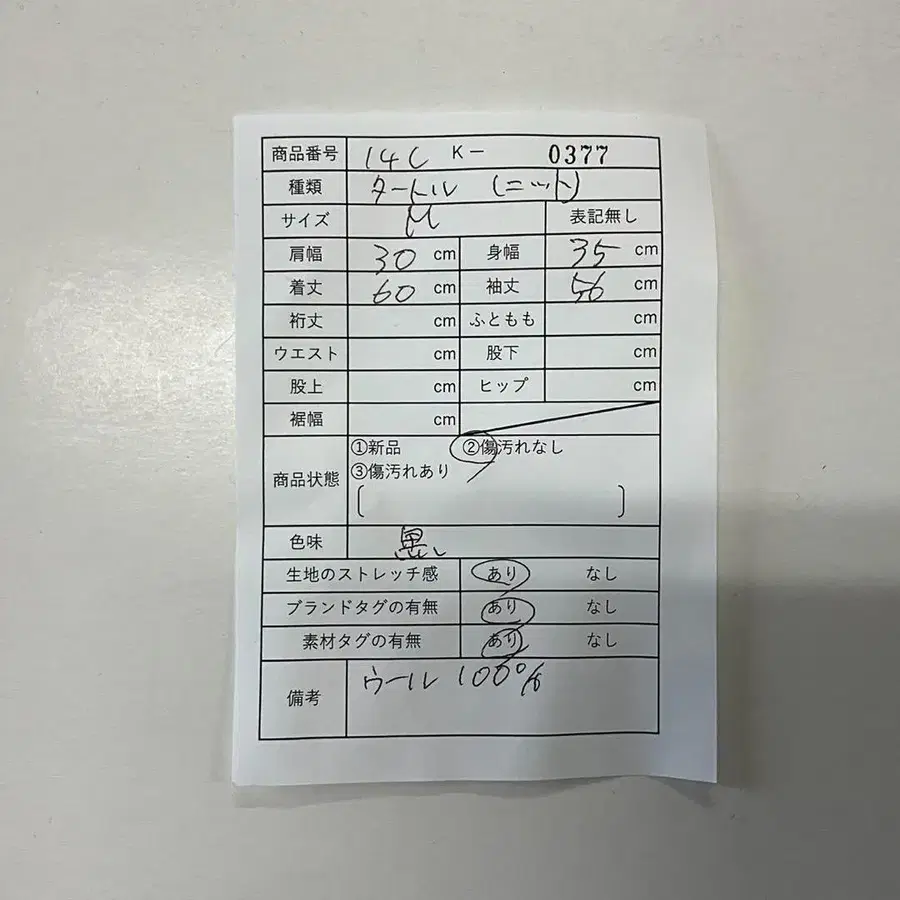 商品番号 14C K− 0377
種類 タートル (ニット)
サイズ M 表記無し
肩幅 30 cm 身幅 35 cm
着丈 60 cm 袖丈 56 cm
裄丈 cm ふともも cm
ウエスト cm 股下 cm
股上 cm ヒップ cm
裾幅 cm
商品状態 ①新品 ②傷汚れなし
③傷汚れあり
色味 黒
生地のストレッチ感 あり なし
ブランドタグの有無 あり なし
素材タグの有無 あり なし
備考 ウール 100%